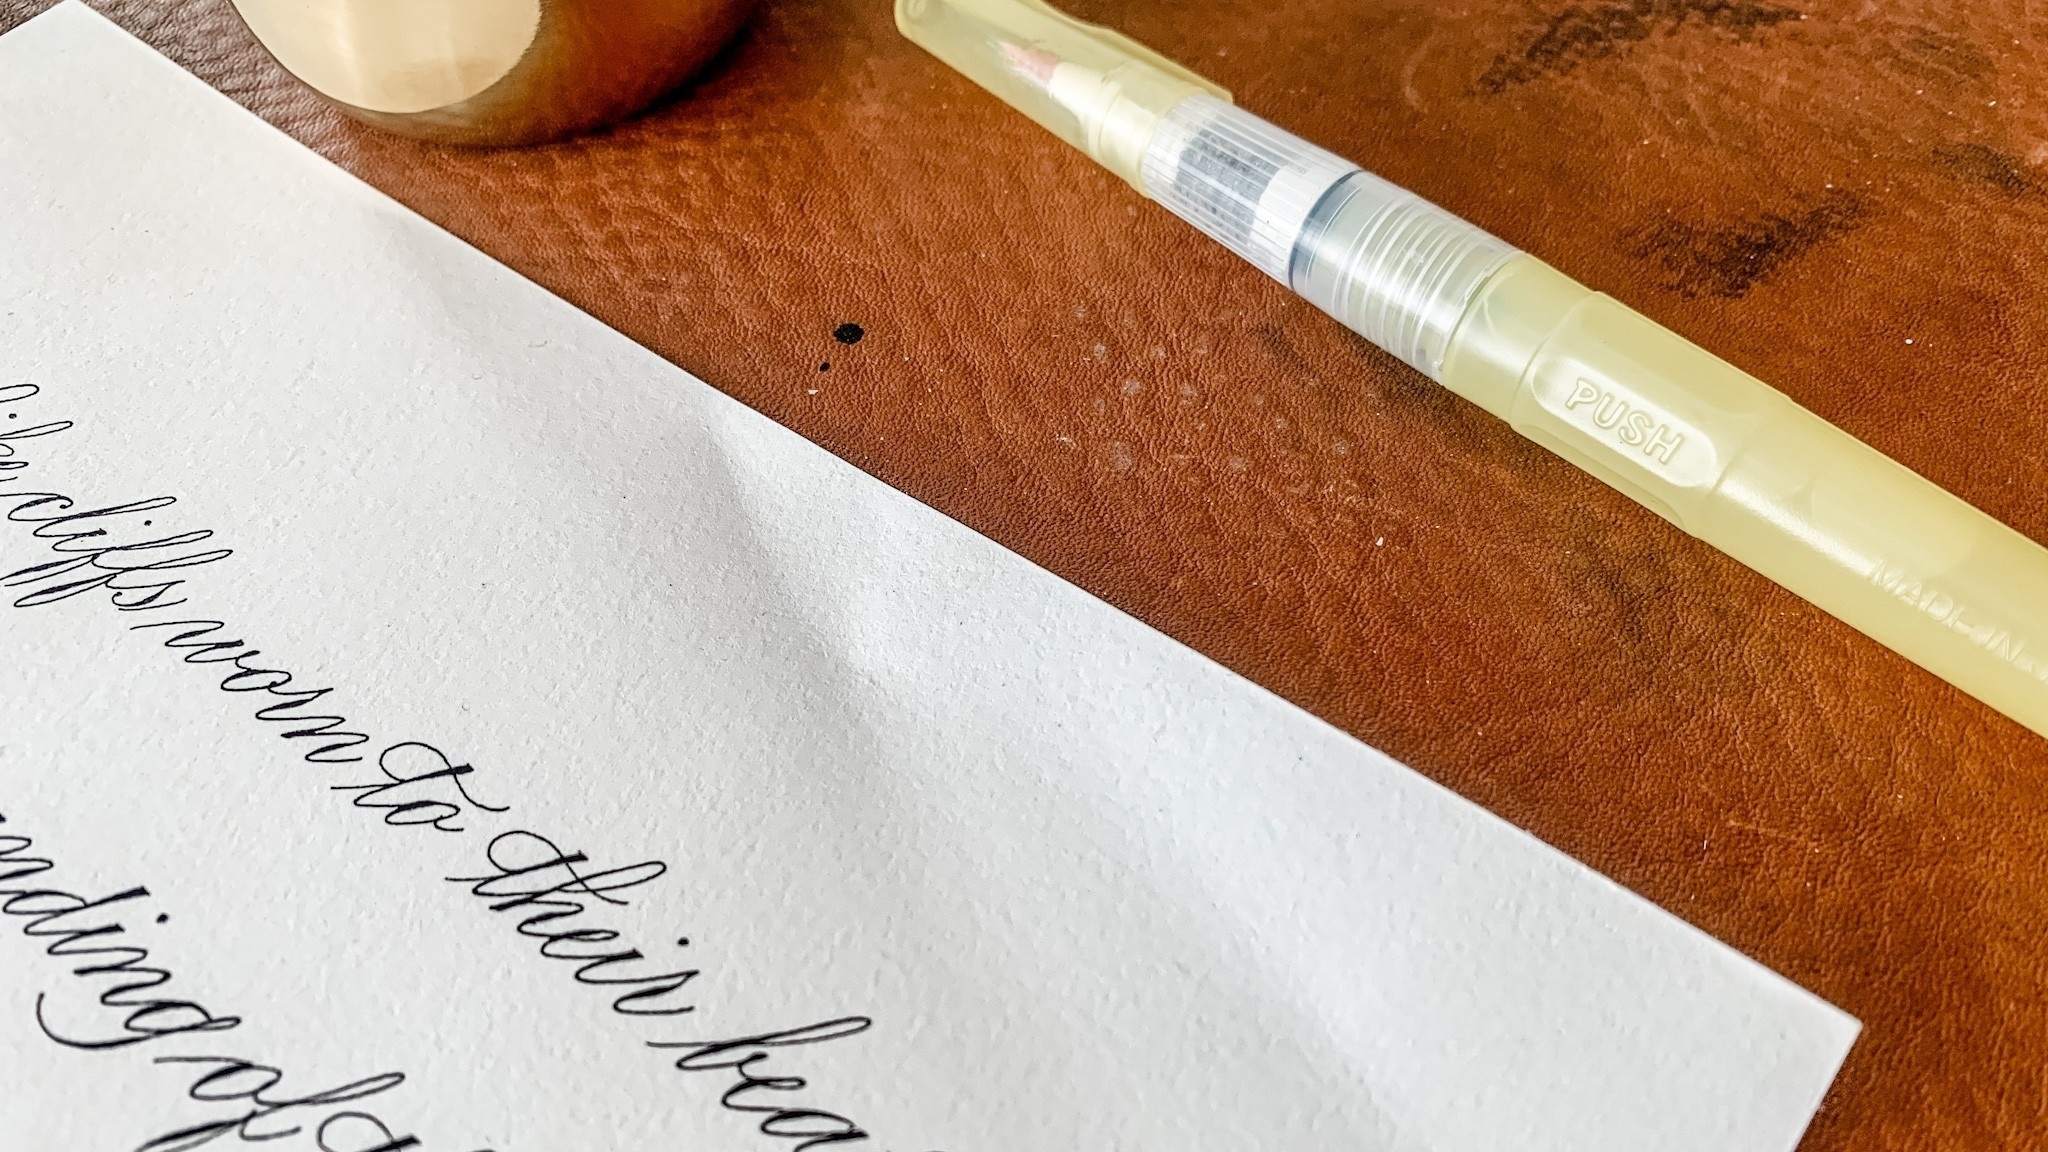 like cliffs worn to their bea
nding of
PUSH
MADE IN